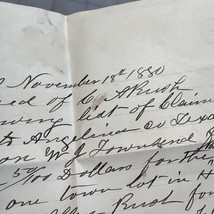 November 18th 1880
of C. A Rusk
wing list of Claim
Angelina co Texa
on W J Townsend
5 00/100 Dollars for the
one town lot in H
Rusk for